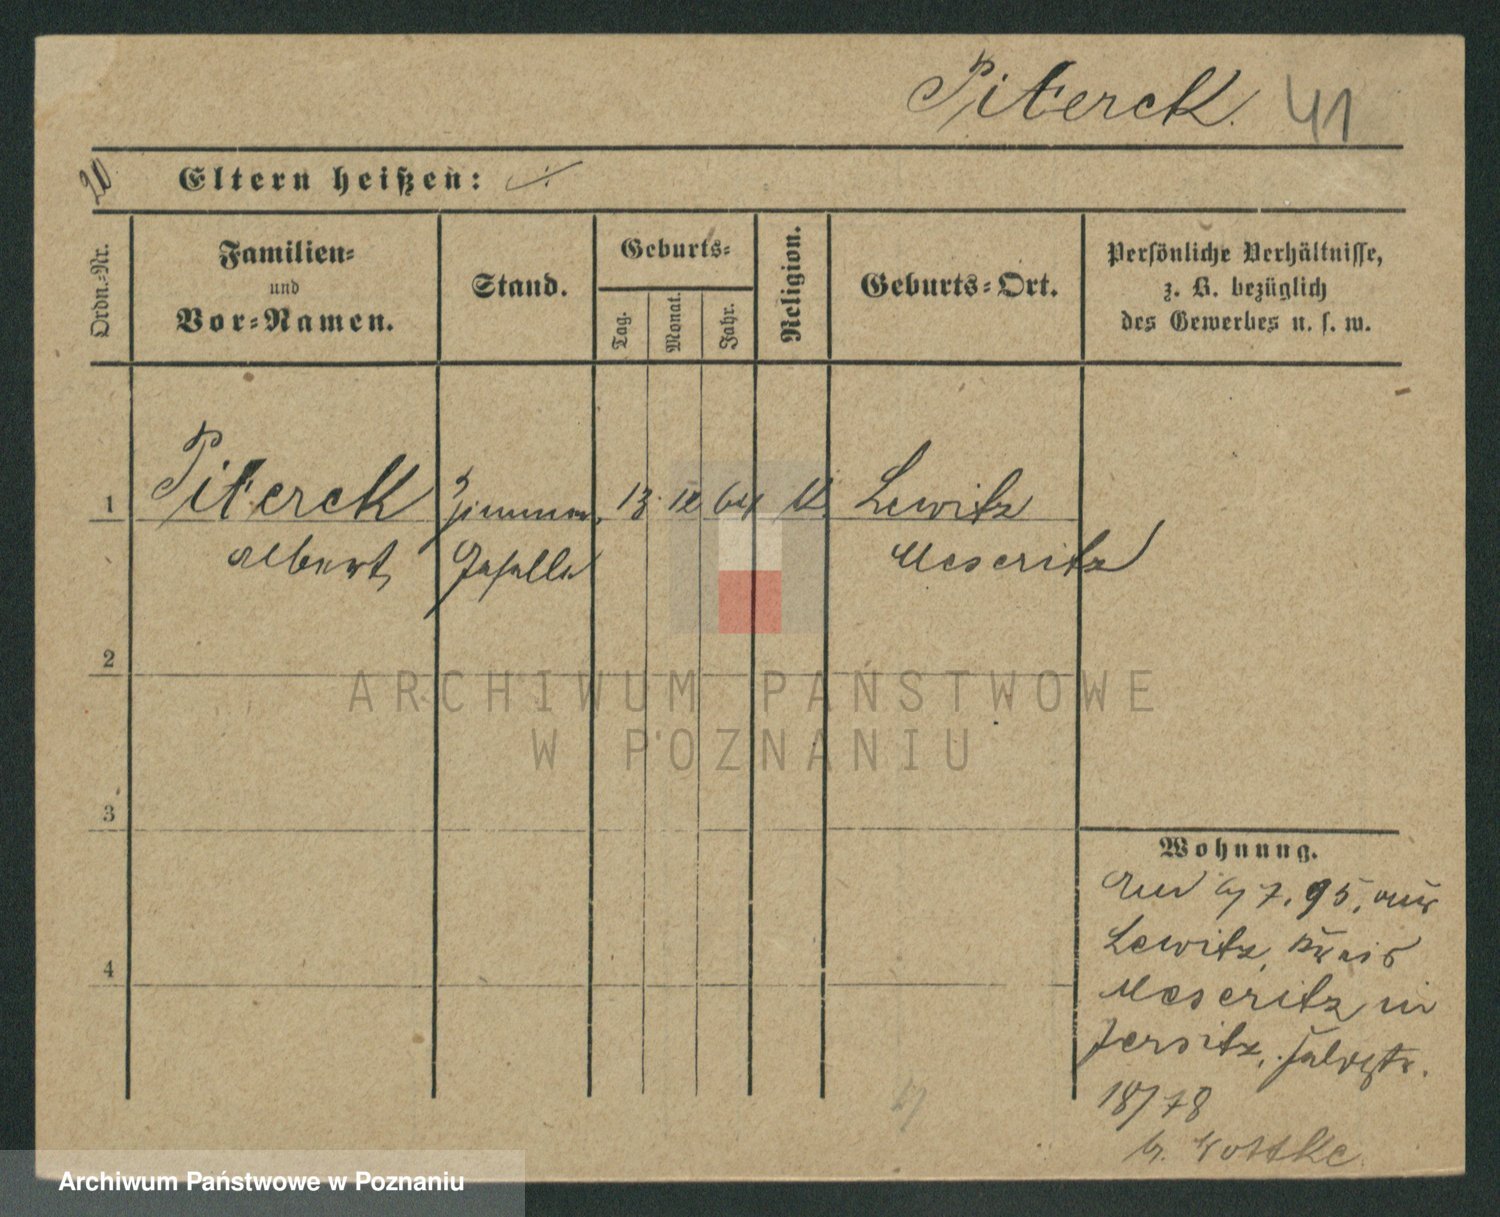 Piterck. 41
20 Eltern heißen: ./.
Ordn.-Nr.
Familien-
und
Vor-Namen.
Stand.
Geburts-
Tag.
Monat.
Jahr.
Religion.
Geburts-Ort.
Persönliche Verhältnisse,
z. B. bezüglich
des Gewerbes u. s. w.
1 Piterck Zimmer, 13. 12 64 K. Lewitz
Albert Geselle Meseritz
2
ARCHIWUM PAŃSTWOWE
W POZNANIU
3
Wohnung.
7. 95, aus
4 Lewitz, Kreis
Meseritz in
Jersitz,
18/78
b. Wottke
Archiwum Państwowe w Poznaniu